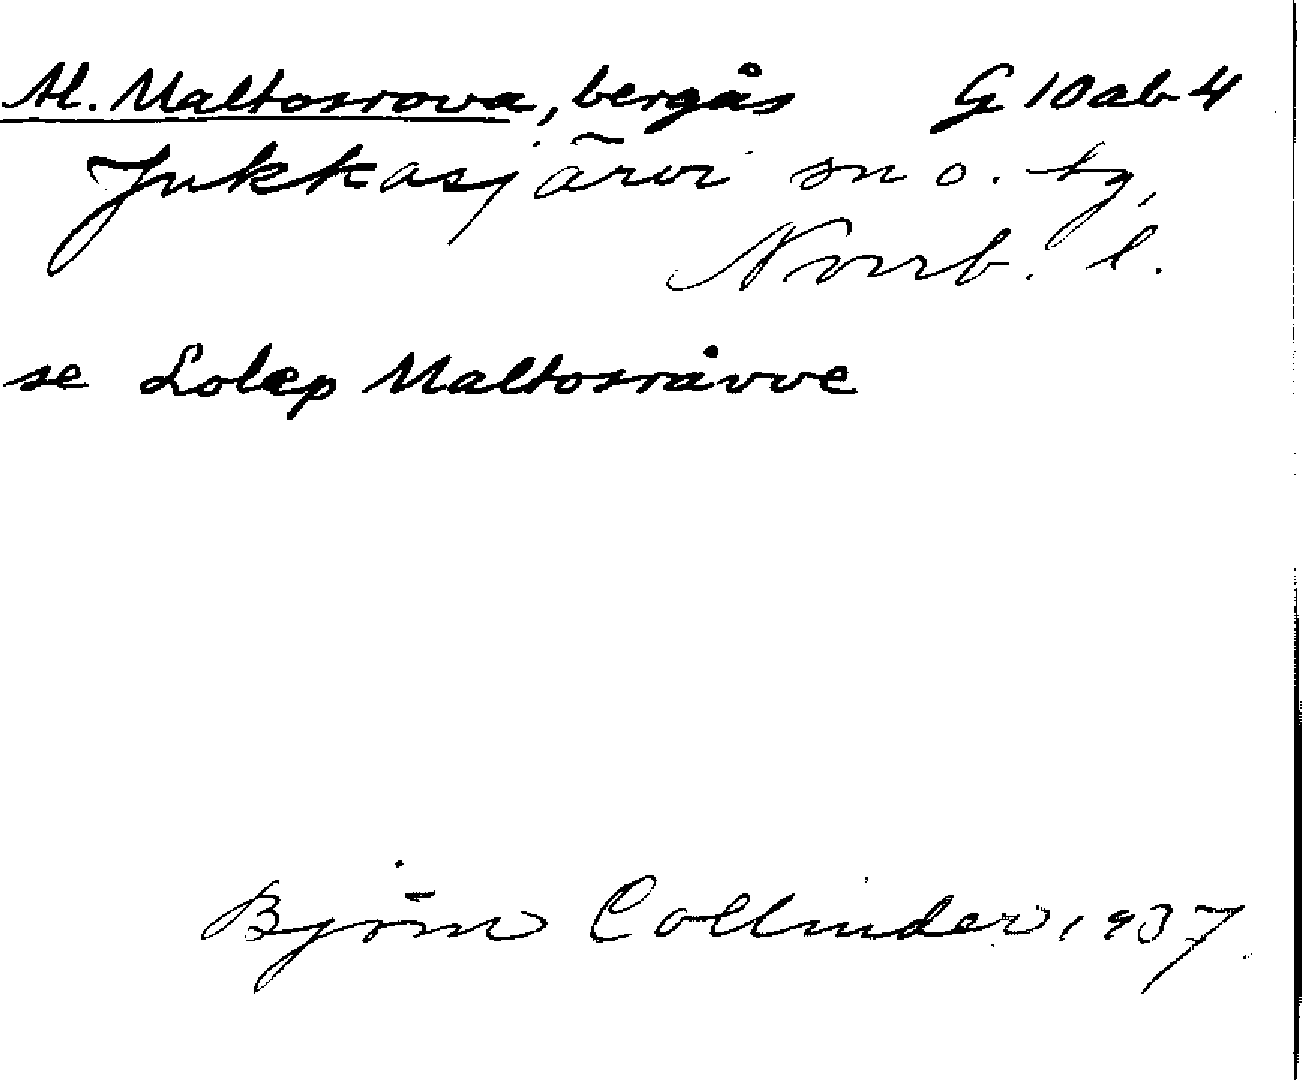 Al. Maltosrova, bergås G 10ab4
Jukkasjärvi sn o. tg,
Norrb. l.
se Lolep Maltosråvve
Björn Collinder 1937.